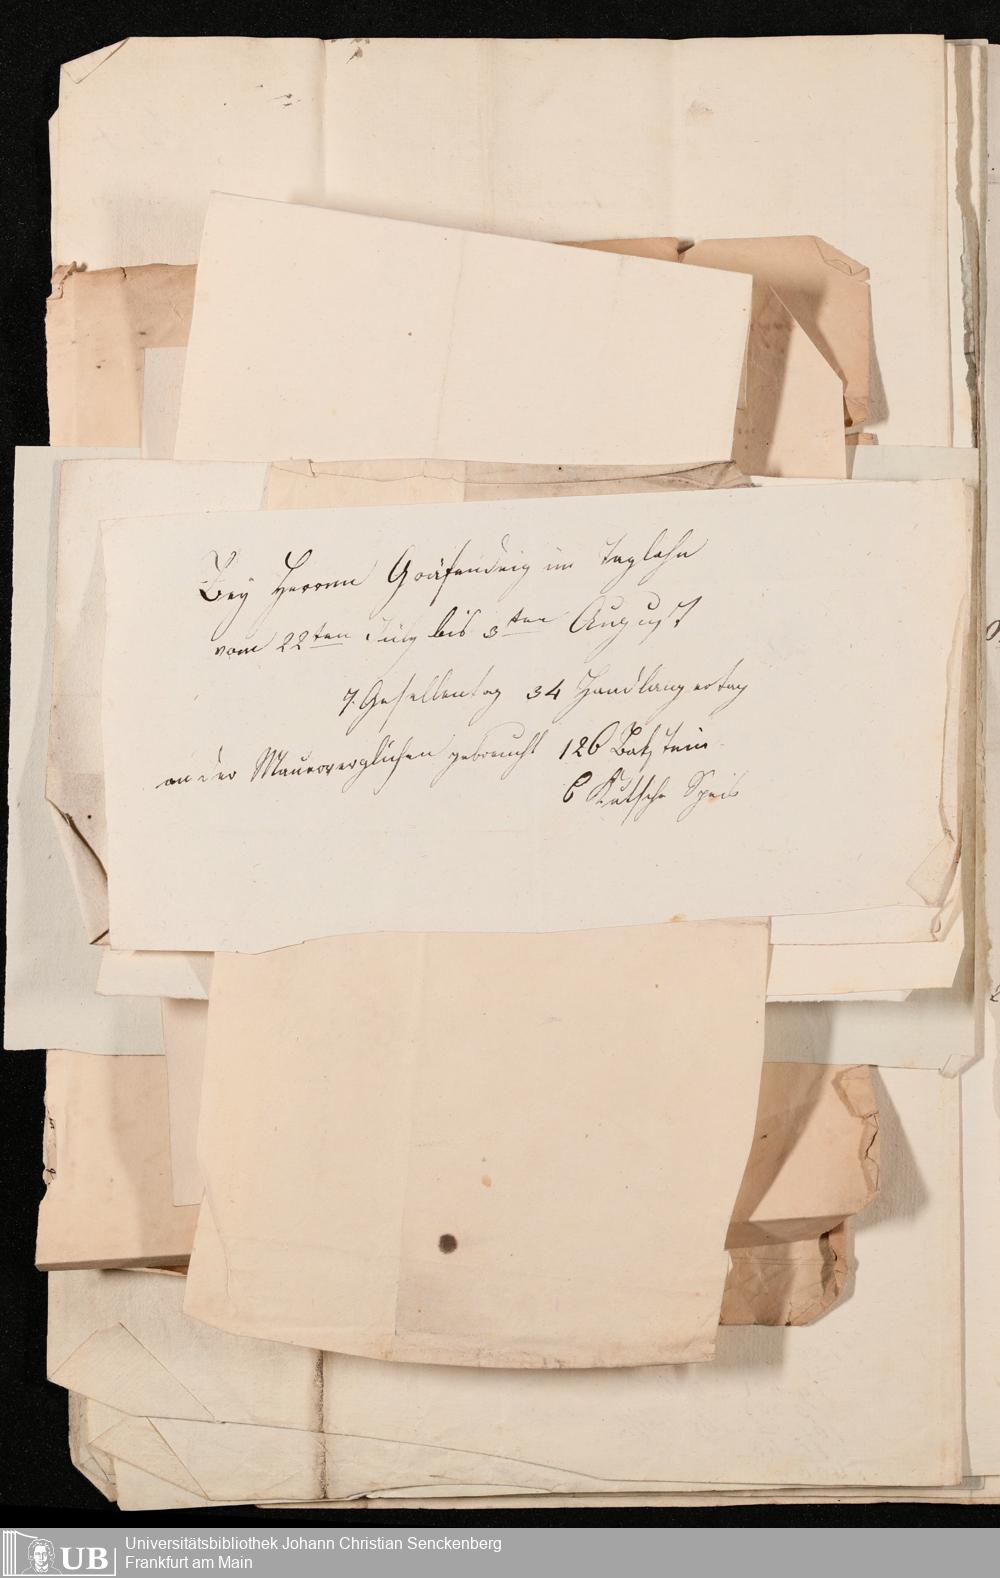 Bey Herrnn Gräfendeig im Taglohn
vom 22ten July bis 3ten August
7. Gesellentag 34 Handlangertag
an der Mauer verglichen gebraucht 126 Bakstein
6 Kutsche Speis
UB
Universitätsbibliothek Johann Christian Senckenberg
Frankfurt am Main